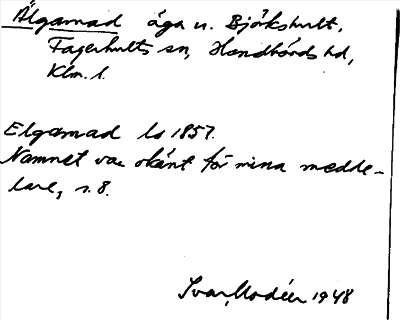 Älgamad äga u. Björkshult,
Fagerhults sn, Handbörds hd,
Klm. l.
Elgamad ls 1857.
Namnet var okänt för mina medde-
lare, s. 8.
Ivar Modéer 1948